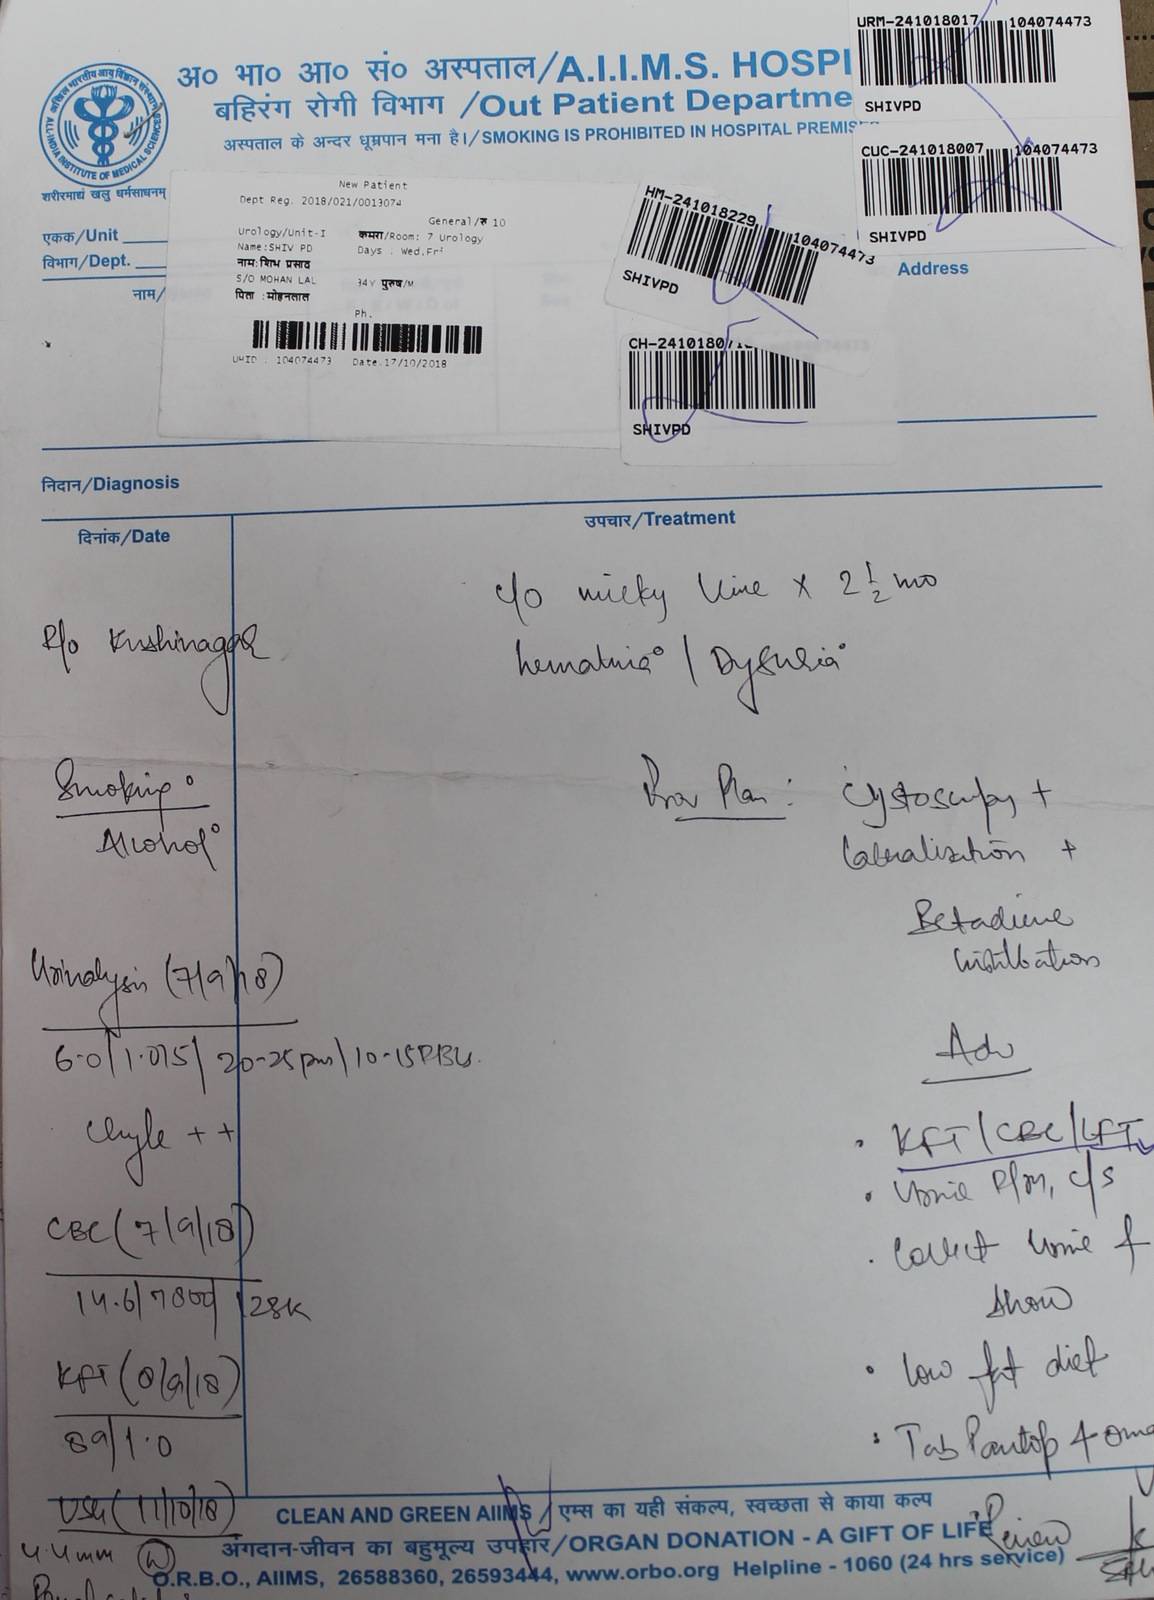 अ० भा० आ० सं० अस्पताल/A.I.I.M.S. HOSPI
बहिरंग रोगी विभाग /Out Patient Departme
अस्पताल के अन्दर धूम्रपान मना है।/ SMOKING IS PROHIBITED IN HOSPITAL PREMIS
ALL-INDIA INSTITUTE OF MEDICAL SCIENCES
शरीरमाद्यं खलु धर्मसाधनम्
URM-241018017 104074473
SHIVPD
CUC-241018007 104074473
SHIVPD
HM-241018229 104074473
SHIVPD
CH-2410180
SHIVPD
एकक/Unit
विभाग/Dept.
नाम/
Address
New Patient
Dept Reg. 2018/021/0013074
General/रु 10
Urology/Unit-I कमरा/Room: 7 Urology
Name:SHIV PD Days : Wed,Fri
नाम:शिभ प्रसाद
S/O MOHAN LAL 34Y पुरुष/M
पिता :मोहनलाल
Ph.
UHID : 104074473 Date.17/10/2018
निदान/Diagnosis
दिनांक/Date
उपचार/Treatment
c/o milky Urine x 2 1/2 mo
R/o Kushinagar
hematuria° / Dysuria°
Smoking°
Alcohol°
Prov Plan: Cystoscopy +
Lateralisation +
Betadine
instillation
Urinalysis (7/9/18)
6.0/1.015/ 20-25 pus/10-15 RBC.
Chyle ++
CBC (7/9/18)
14.6/7800/128K
KFT (8/9/18)
89/1.0
USG (11/10/18)
4.4mm
Adv
• KFT/CBC/LFT
• Urine R/M, C/S
• Collect Urine &
show
• low fat diet
• Tab Pantop 40mg
Review
CLEAN AND GREEN AIIMS / एम्स का यही संकल्प, स्वच्छता से काया कल्प
अंगदान-जीवन का बहुमूल्य उपहार/ORGAN DONATION - A GIFT OF LIFE
O.R.B.O., AIIMS, 26588360, 26593444, www.orbo.org Helpline - 1060 (24 hrs service)